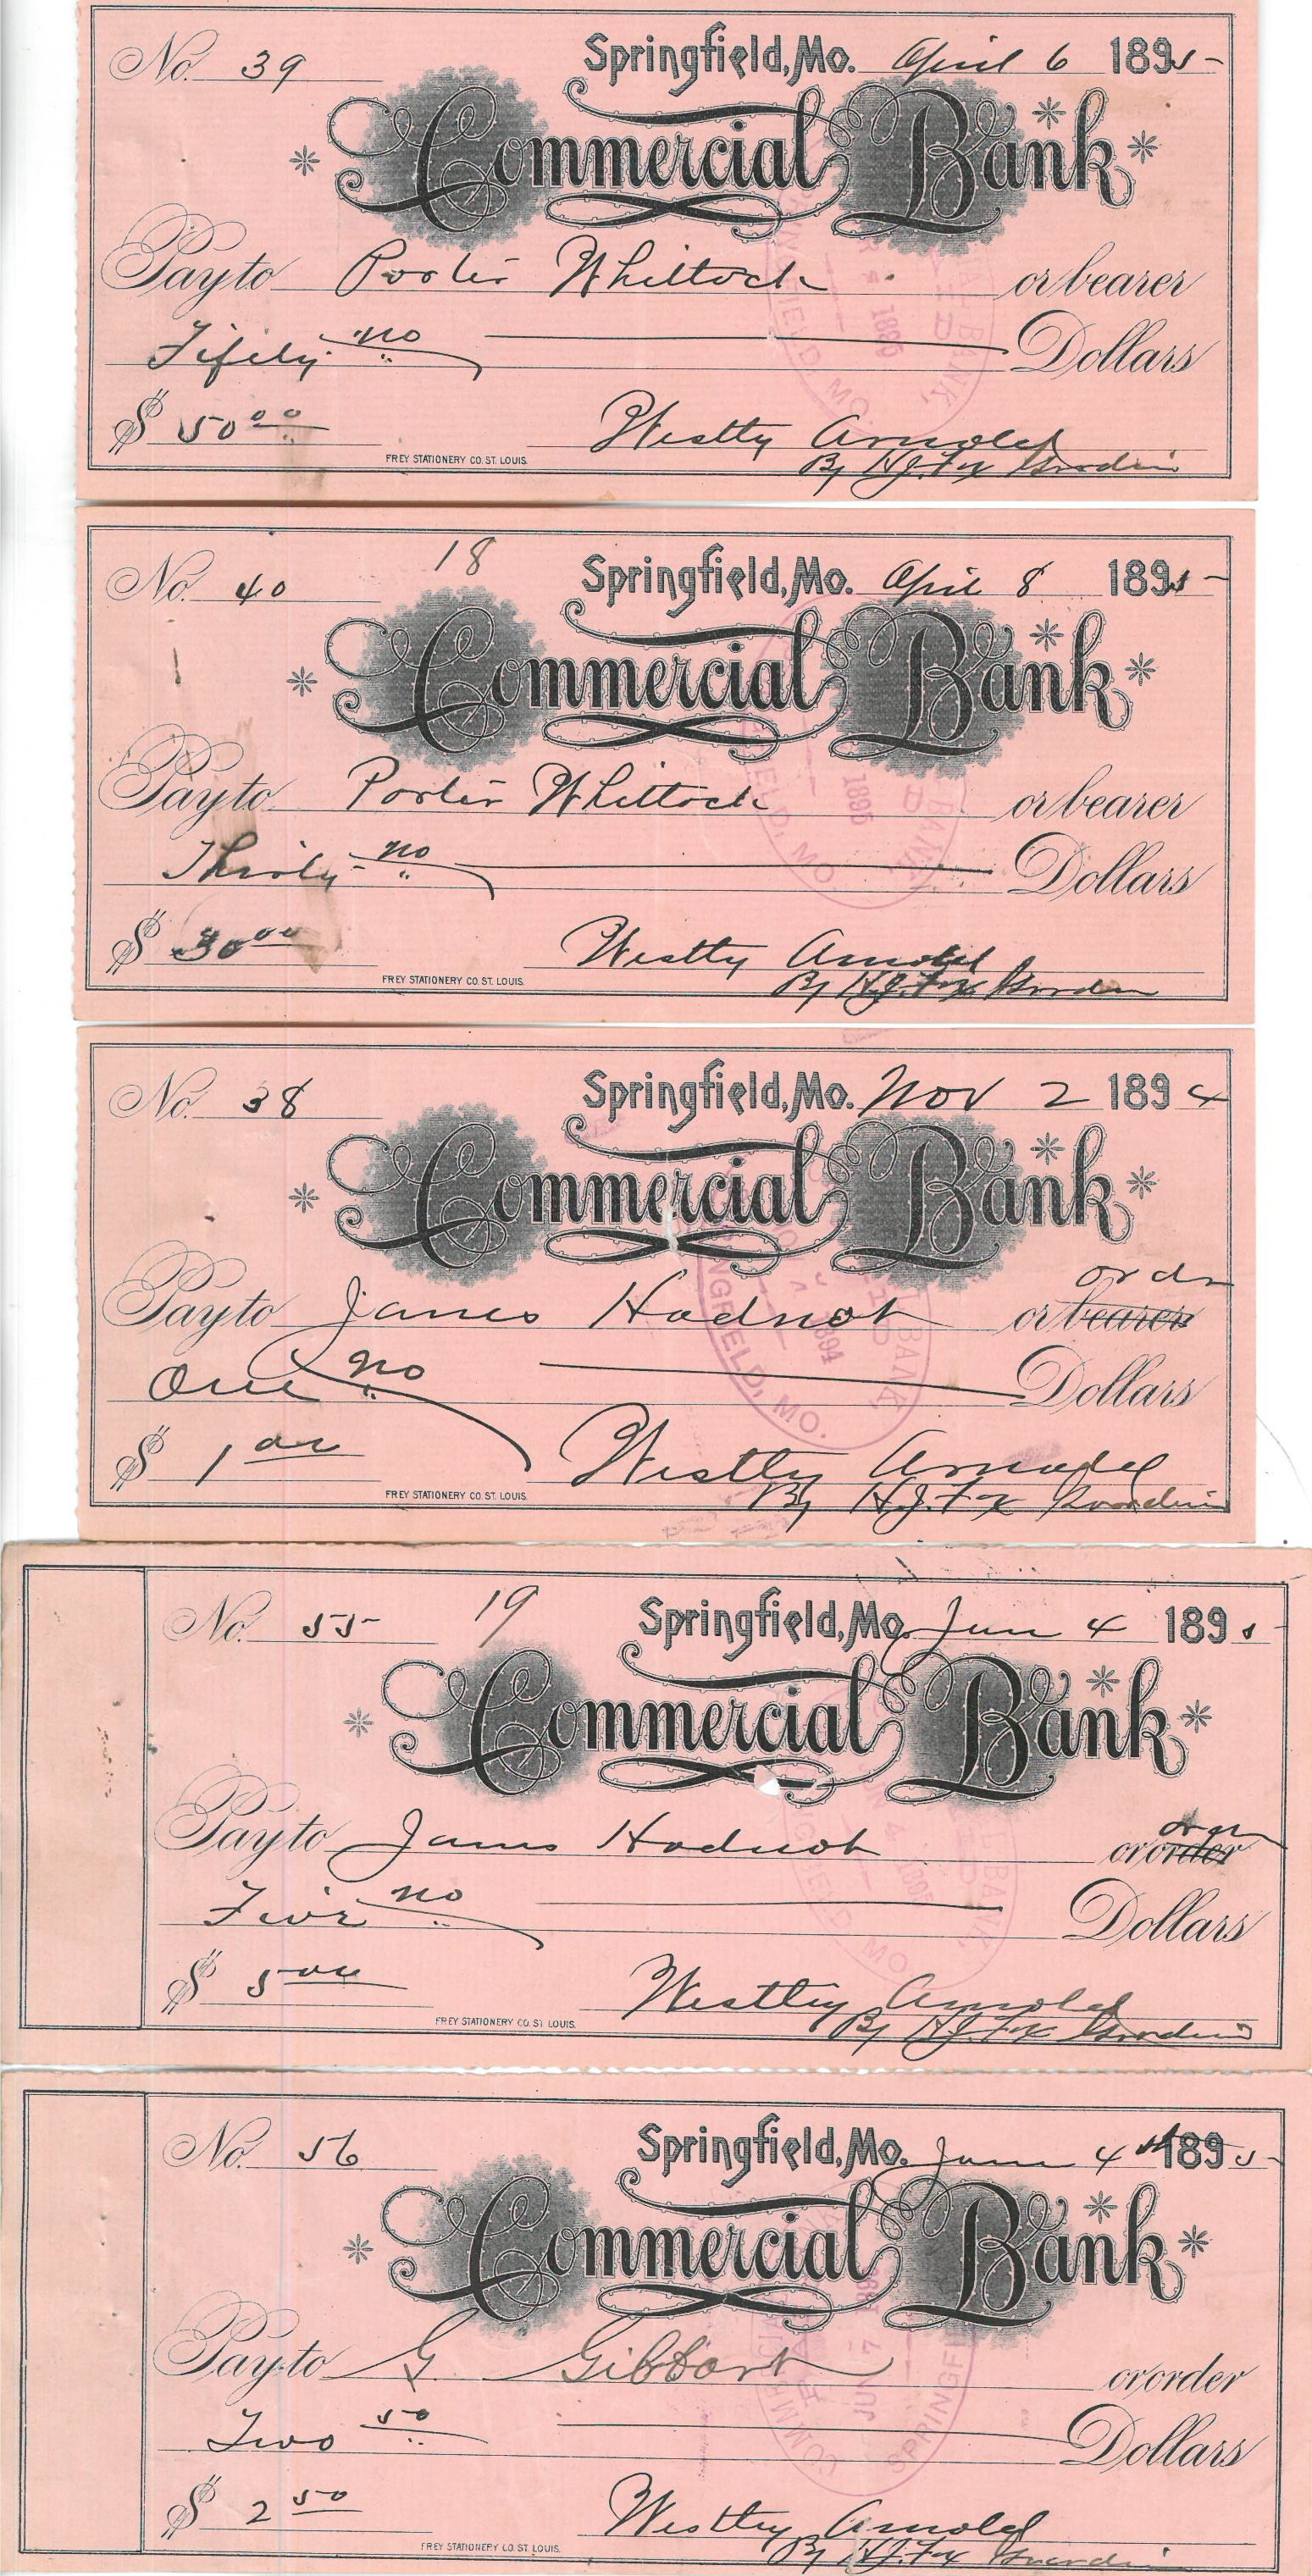 No. 39 Springfield, Mo. April 6 1895
Commercial Bank
Pay to Porter Whittock or bearer
Fifity no Dollars
$ 50 00 Westly Arnold
FREY STATIONERY CO. ST. LOUIS. By H.J. Fox Guardian
18
No. 40 Springfield, Mo. April 8 1895
Commercial Bank
Pay to Porter Whittock or bearer
Thirty no Dollars
$ 30 00 Westly Arnold
FREY STATIONERY CO. ST. LOUIS. By H.J. Fox Guardian
No. 38 Springfield, Mo. Nov 2 1894
Commercial Bank
ordr
Pay to James Hodnot or bearer
One no Dollars
$ 1 00 Westly Arnold
FREY STATIONERY CO. ST. LOUIS. By H.J. Fox Guardian
No. 55 19 Springfield, Mo. June 4 1895
Commercial Bank
Pay to James Hodnot or order
Five no Dollars
$ 5 00 Westley Arnold
FREY STATIONERY CO. ST. LOUIS. By H.J. Fox Guardian
No. 56 Springfield, Mo. June 4th 1895
Commercial Bank
Pay to G Gibbart or order
Two 50 Dollars
$ 2 50 Westley Arnold
FREY STATIONERY CO. ST. LOUIS. By H.J. Fox Guardian